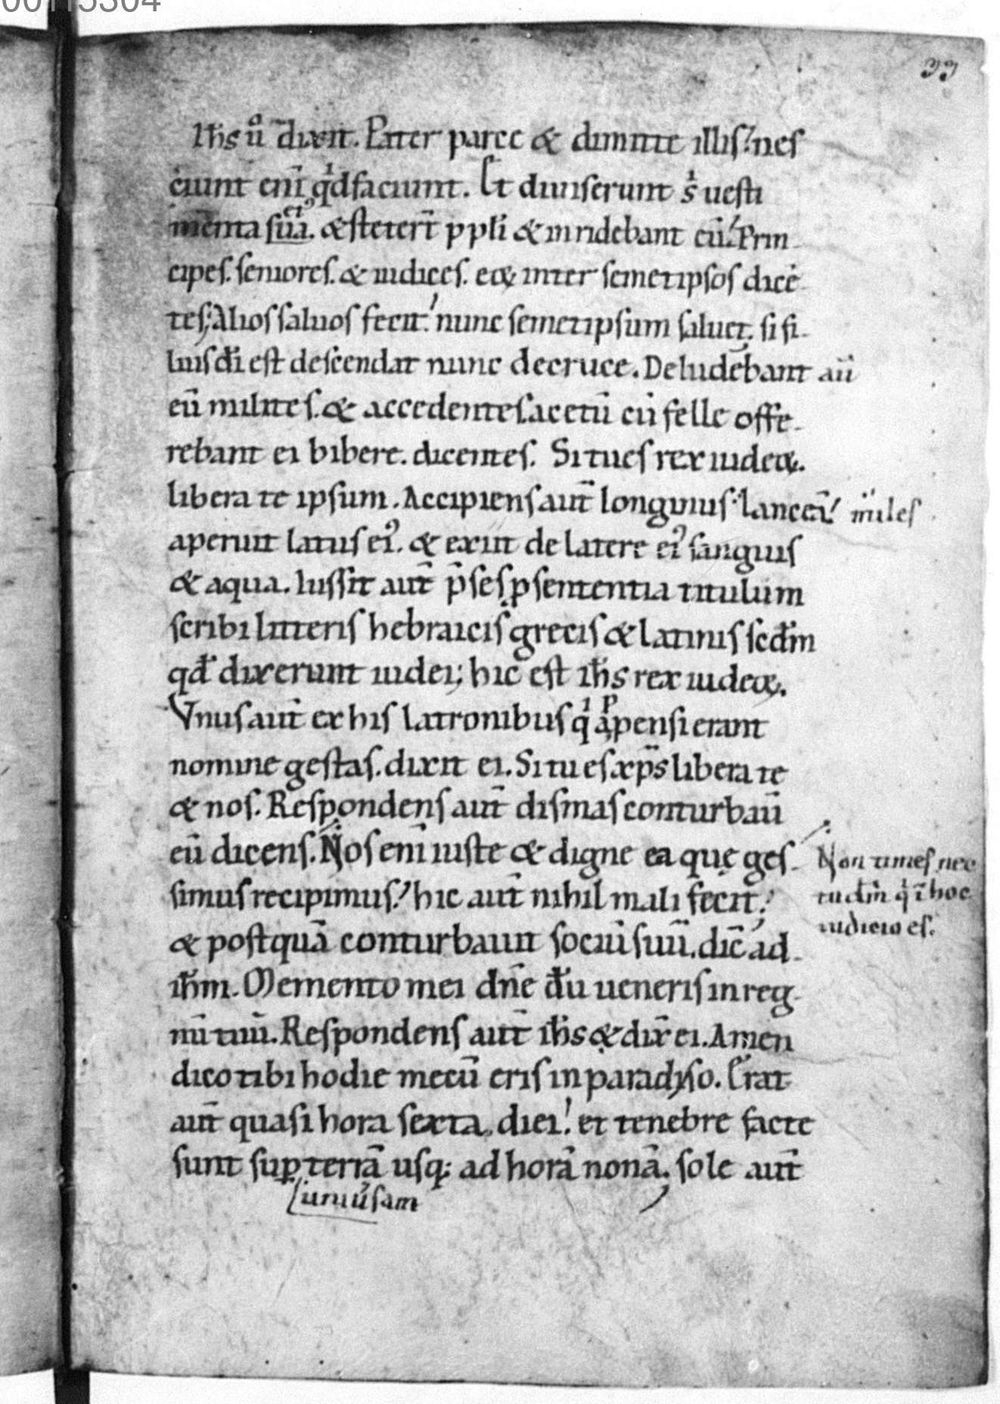 00113304
33
Ih̄s ů dixit. Pater parce & dimitte illis: nes
ciunt eni qd faciunt. Et diuiserunt s uesti
menta sua. & stetert ppli & inridebant eū. Prin
cipes. seniores. & iudices. eoꝝ inter semetipsos dicē
tes; Alios saluos fecit: nunc semetipsum saluet. si fi
lius dī est descendat nunc decruce. Deludebant aū
eū milites. & accedentes acetū cū felle offe
rebant ei bibere. dicentes. Si tu es rex iudeoꝝ.
libera te ipsum. Accipiens aut̄ longinus lanceā miles
aperuit latus ei᾿. & exiit de latere ei᾿ sanguis
& aqua. Iussit aut̄ p̄ses p sententia titulum
scribi litteris hebraicis grecis & latinis scd̄m
qd̄ dixerunt iudei; hic est ih̄s rex iudeoꝝ.
Vnus aut̄ ex his latronibus q appensi erant
nomine gestas. dixit ei. Si tu es xp̄s libera te
& nos. Respondens aut̄ dismas conturbaū
eū dicens. Nos enī iuste & digne ea quę ges
Non times nec
simus recipimus: hic aut̄ nihil mali fecit:
tu dm̄ q ī hoc
iudicio es.
& postquā conturbauit sociū suū. dic̄ ad
ih̄m. Memento mei dn̄e dū ueneris in reg
nū tuū. Respondens aut̄ ih̄s & dix̄ ei. Amen
dico tibi hodie mecū eris in paradyso. Erat
aut̄ quasi hora sexta. diei: et tenebre facte
sunt sup terrā usq; ad horā nonā. sole aut̄
uniūsam